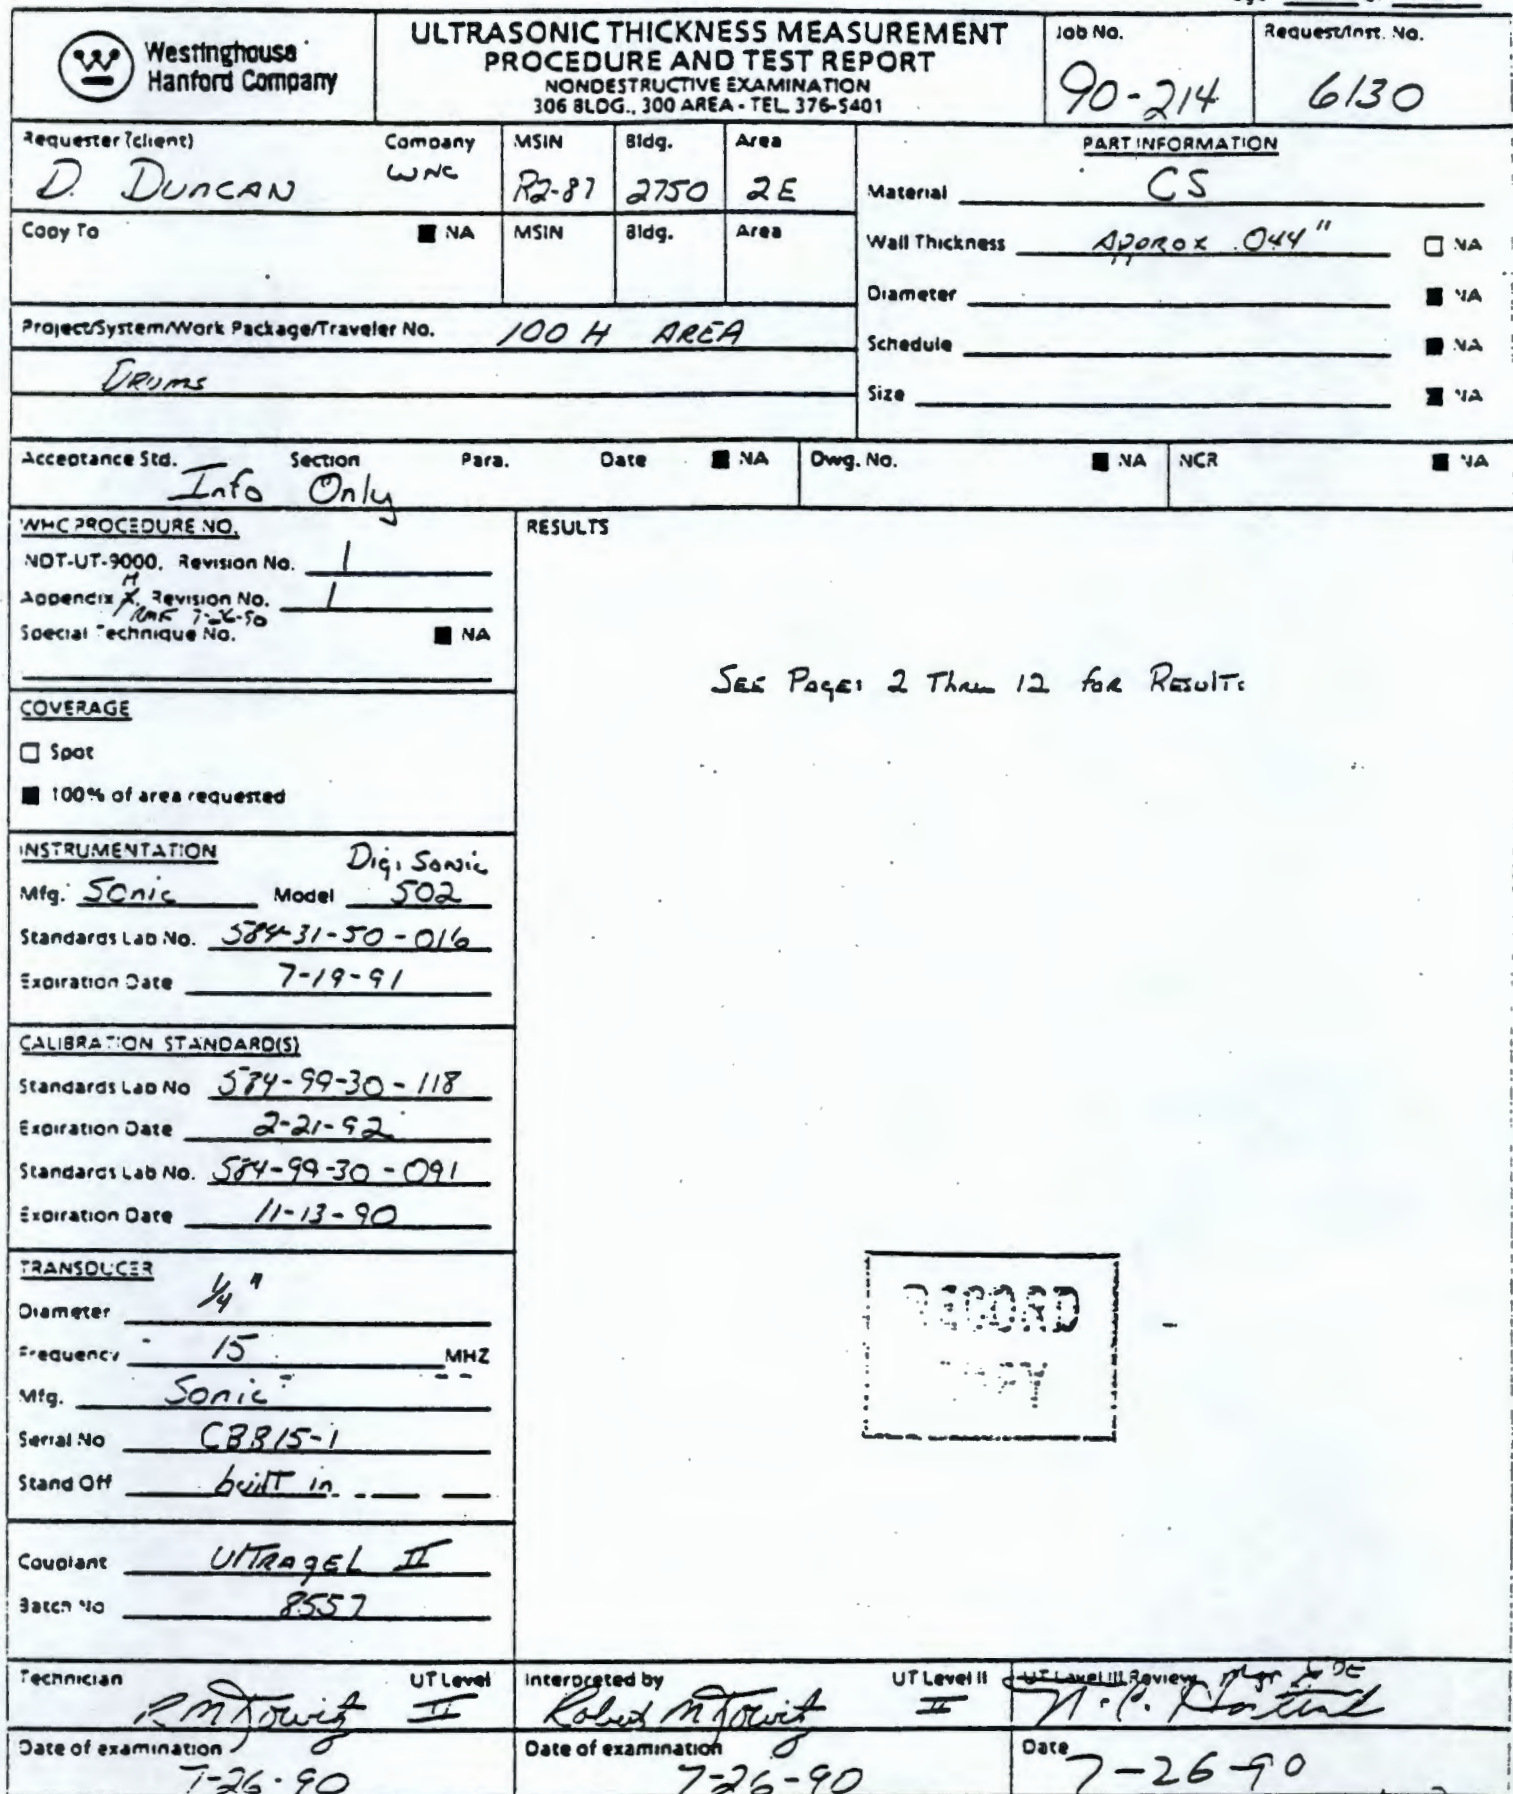 Westinghouse
Hanford Company
ULTRASONIC THICKNESS MEASUREMENT
PROCEDURE AND TEST REPORT
NONDESTRUCTIVE EXAMINATION
306 BLDG., 300 AREA - TEL. 376-5401
Job No.
90-214
Request/Inst. No.
6130
Requester (client)
D. DUNCAN
Company
WNC
MSIN
R2-87
Bldg.
2750
Area
2E
Copy To
NA
MSIN
Bldg.
Area
Project/System/Work Package/Traveler No. 100 H AREA
DRUMS
PART INFORMATION
Material CS
Wall Thickness Approx .044" NA
Diameter NA
Schedule NA
Size NA
Acceptance Std. Section Para. Date NA
Info Only
Dwg. No. NA
NCR NA
WHC PROCEDURE NO.
NDT-UT-9000, Revision No. 1
H
Appendix X, Revision No. 1
RMF 7-26-90
Special Technique No. NA
COVERAGE
Spot
100% of area requested
INSTRUMENTATION
Digi Sonic
Mfg. Sonic Model 502
Standards Lab No. 584-31-50-016
Expiration Date 7-19-91
CALIBRATION STANDARD(S)
Standards Lab No 584-99-30-118
Expiration Date 2-21-92
Standards Lab No. 584-99-30-091
Expiration Date 11-13-90
TRANSDUCER
Diameter 1/4"
Frequency 15 MHZ
Mfg. Sonic
Serial No CBB15-1
Stand Off built in
Couplant UlTRAgEL II
Batch No 8557
RESULTS
SEE PAGES 2 Thru 12 for RESulTs
RECORD
Technician UT Level
II
Date of examination
7-26-90
Interpreted by UT Level II
Robert M
II
Date of examination
7-26-90
UT Level III Review Mgr NDE
Date
7-26-90